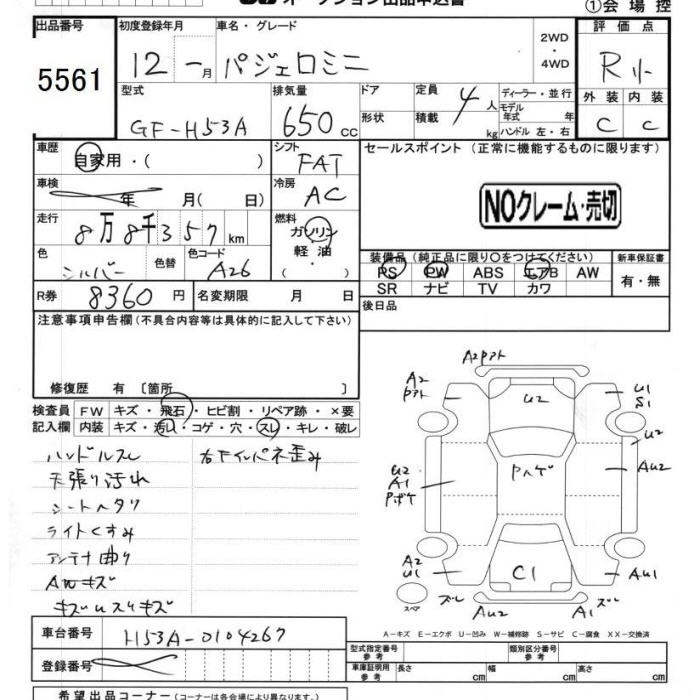 オークション出品申込書
①会場控
出品番号
5561
初度登録年月
車名・グレード
12 一月
パジェロミニ
2WD
・
4WD
評価点
R
外装 内装
C C
型式
GF-H53A
排気量
650 cc
ドア
形状
定員
4人
積載
kg
ディーラー・並行
モデル
年式 年
ハンドル 左・右
車歴
自家用・( )
シフト
FAT
セールスポイント (正常に機能するものに限ります)
車検
年 月( 日)
冷房
AC
NOクレーム・売切
走行
8万8千357 km
燃料
ガソリン
軽油
・( )
色
シルバー
色替
色コード
A26
装備品(純正品に限り○をつけてください)
新車保証書
PS PW ABS エアB AW
SR ナビ TV カワ
有・無
R券
8360円
名変期限 月 日
後日品
注意事項申告欄(不具合内容等は具体的に記入して下さい)
修復歴 有 〔箇所 〕
検査員 FW キズ・飛石・ヒビ割・リペア跡・×要
記入欄 内装 キズ・汚れ・コゲ・穴・スレ・キレ・破レ
ハンドルスレ
右Fインパネ歪み
天張り汚れ
シートヘタリ
ライトくすみ
アンテナ曲り
AWキズ
A2Pアト
A2
Pアト
U2
U1
S1
U2
U2
A1
Pボケ
Pハゲ
AU2
A2
U1
C1
AU1
スペア
ズレ
AU2
A1
ズレ
A-キズ E-エクボ U-凹み W-補修跡 S-サビ C-腐食 XX-交換済
車台番号
H53A-0104267
登録番号
型式指定番号
参考
類別区分番号
参考
車庫証明用
参考
長さ cm
幅 cm
高さ cm
希望出品コーナー(コーナーは各会場により異なります。)